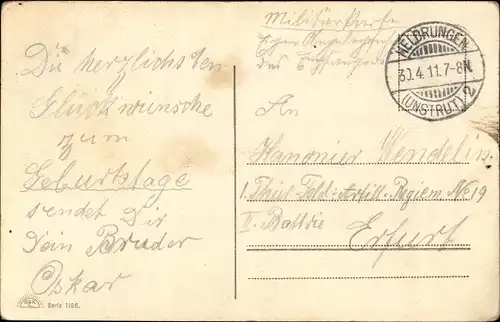 Die herzlichsten
Glückwünsche
zum
Geburtstage
sendet Dir
Dein Bruder
Oskar
Militärkarte
Eigene Angelegenheit
des Empfängers
HELDRUNGEN
30.4.11.7-8N.
(UNSTRUT) 2
An
Kanonier Wendelin
1. Thür Feld-Artill. Regiem No 19
II. Battrie
Erfurt
Serie 1196.